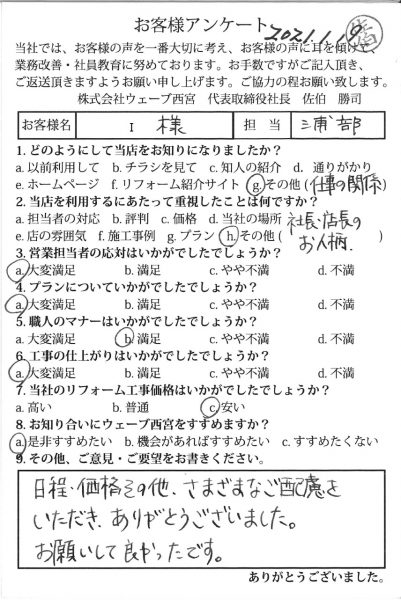 お客様アンケート 2021.1.19
当社では、お客様の声を一番大切に考え、お客様の声に耳を傾けて、
業務改善・社員教育に努めております。お手数ですがご記入頂き、
ご返送頂きますようお願い申し上げます。ご協力の程お願い致します。
株式会社ウェーブ西宮 代表取締役社長 佐伯 勝司
お客様名 I 様 担 当 三浦 部
1. どのようにして当店をお知りになりましたか？
a. 以前利用して b. チラシを見て c. 知人の紹介 d. 通りがかり
e. ホームページ f. リフォーム紹介サイト g. その他 ( 仕事の関係
2. 当店を利用するにあたって重視したことは何ですか？
a. 担当者の対応 b. 評判 c. 価格 d. 当社の場所 社長・店長の
e. 店の雰囲気 f. 施工事例 g. プラン h. その他 ( お人柄. )
3. 営業担当者の応対はいかがでしたでしょうか？
a. 大変満足 b. 満足 c. やや不満 d. 不満
4. プランについていかがでしたでしょうか？
a. 大変満足 b. 満足 c. やや不満 d. 不満
5. 職人のマナーはいかがでしたでしょうか？
a. 大変満足 b. 満足 c. やや不満 d. 不満
6. 工事の仕上がりはいかがでしたでしょうか？
a. 大変満足 b. 満足 c. やや不満 d. 不満
7. 当社のリフォーム工事価格はいかがでしたでしょうか？
a. 高い b. 普通 c. 安い
8. お知り合いにウェーブ西宮をすすめますか？
a. 是非すすめたい b. 機会があればすすめたい c. すすめたくない
9. その他、ご意見・ご要望をお書きください。
日程・価格その他、さまざまなご配慮を
いただき、ありがとうございました。
お願いして良かったです。
ありがとうございました。